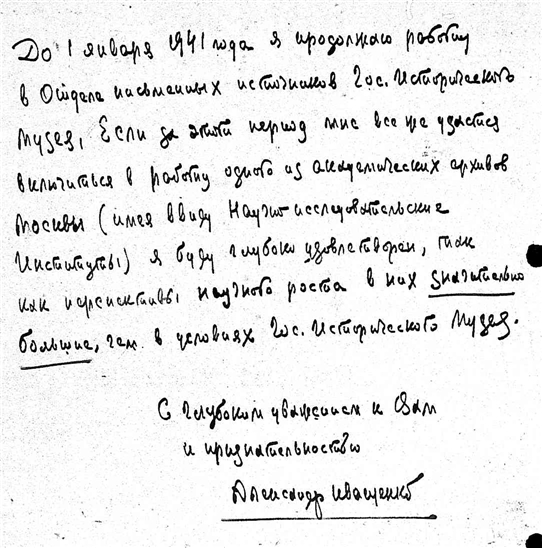 До 1 января 1941 года я продолжаю работу
в Отделе письменных источников Гос. Исторического
Музея. Если за этот период мне все же удастся
включиться в работу одного из академических архивов
Москвы (имея ввиду Научно-исследовательские
Институты) я буду глубоко удовлетворен, так
как перспективы научного роста в них значительно
большие, чем в условиях Гос. Исторического Музея.
С глубоким уважением к Вам
и признательностью
Александр Иващенко